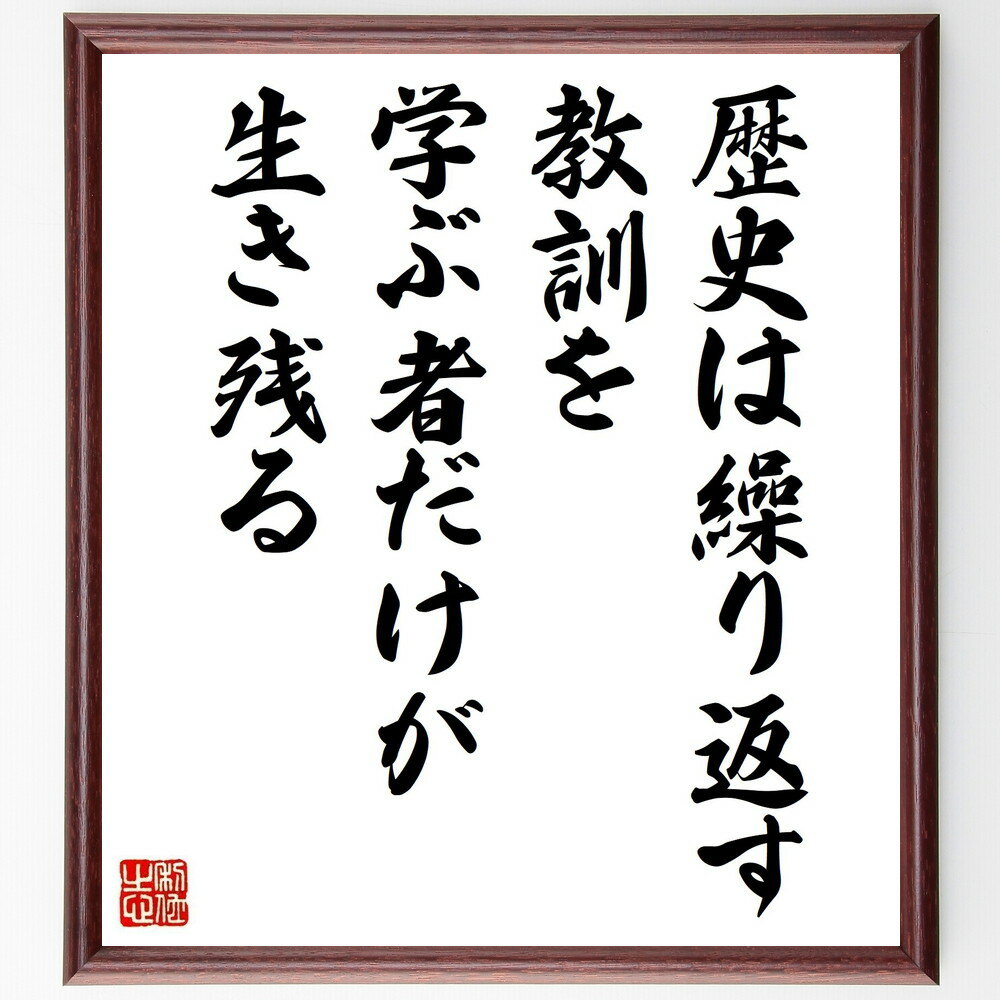 歴史は繰り返す
教訓を
学ぶ者だけが
生き残る